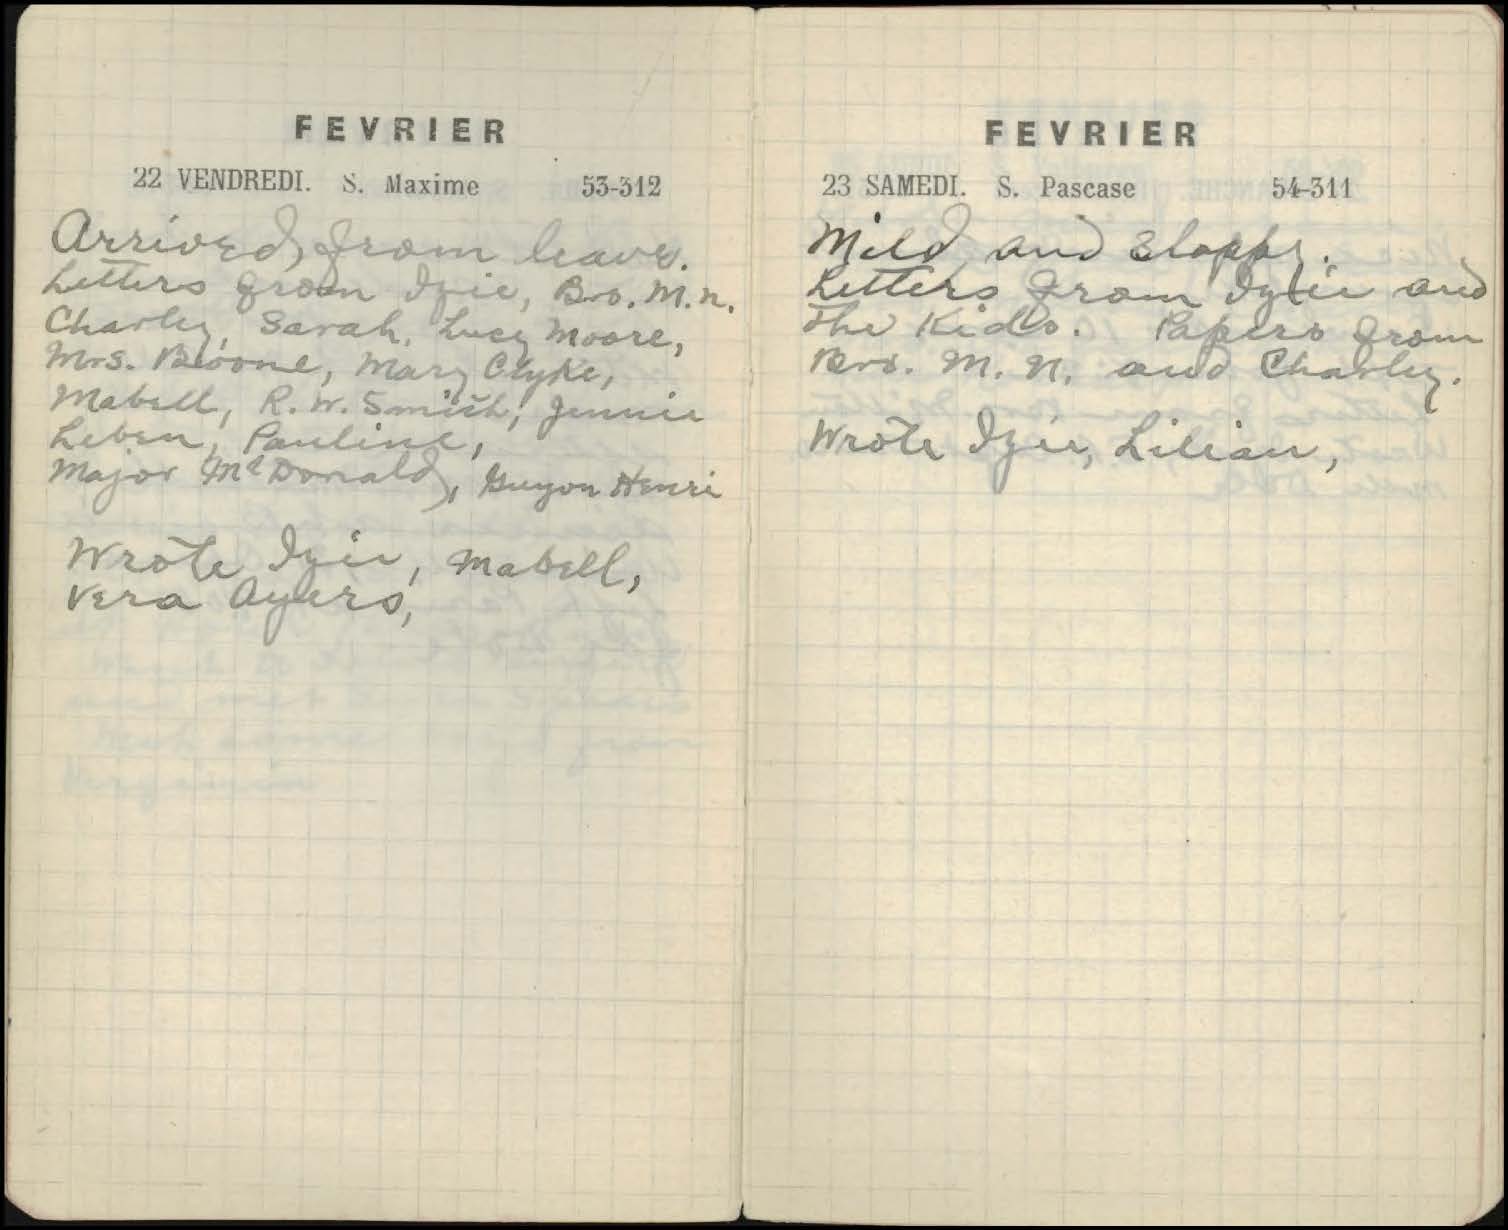 FEVRIER
22 VENDREDI. S. Maxime 53-312
Arrived from leave.
Letters from Izie, Bro. M.N.
Charley, Sarah, Lucy Moore,
Mrs. Boone, Mary Clyke,
Mabell, R.W. Smith, Jennie
Leben, Pauline,
Major McDonald, Guyon Henri
Wrote Izie, Mabell,
Vera Ayers,
FEVRIER
23 SAMEDI. S. Pascase 54-311
Mild and Sloppy.
Letters from Izie and
the Kids. Papers from
Bro. M. N. and Charley.
Wrote Izie, Lilian,